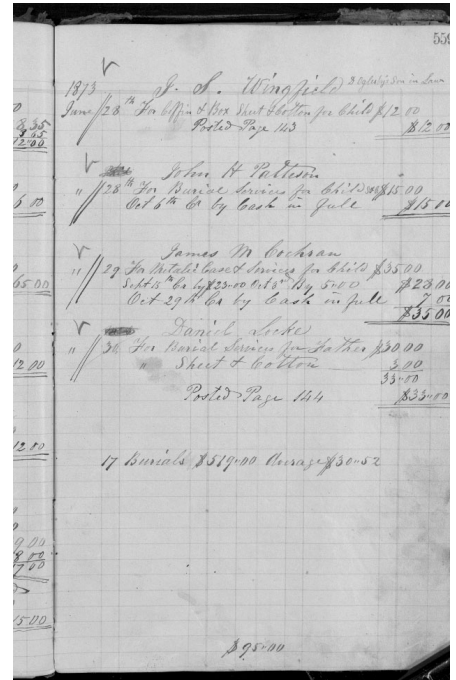 559
1873 J. S. Wingfield
June 28th For Coffin & Box Sheet & Cotton for Child $12.00
Posted Page 143 $12.00
John H Patteson
" 28th For Burial Services for Child $15.00
Oct 6th Cr by Cash in full $15.00
James M Cochran
" 29 For Metalic Case & Services for Child $35.00
Sept 15th Cr by $23=00 Oct 3rd By 5=00 $28=00
Oct 29th Cr by Cash in full 7 00
$35 00
Daniel Locke
" 30 For Burial Services for Father $30.00
" Sheet & Cotton 3.00
33=00
Posted Page 144 $33=00
17 Burials $519=00 Average $30=52
$95=00
8 35
3 65
12=00
5 00
65=00
12 00
12 00
9 00
8 00
7 00
15=00